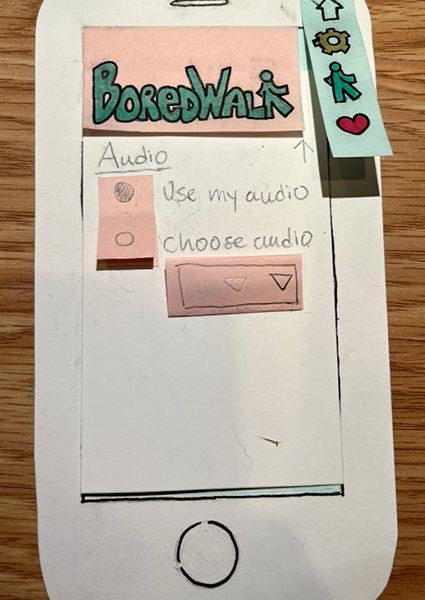 BoredWalk
Audio
Use my audio
choose audio